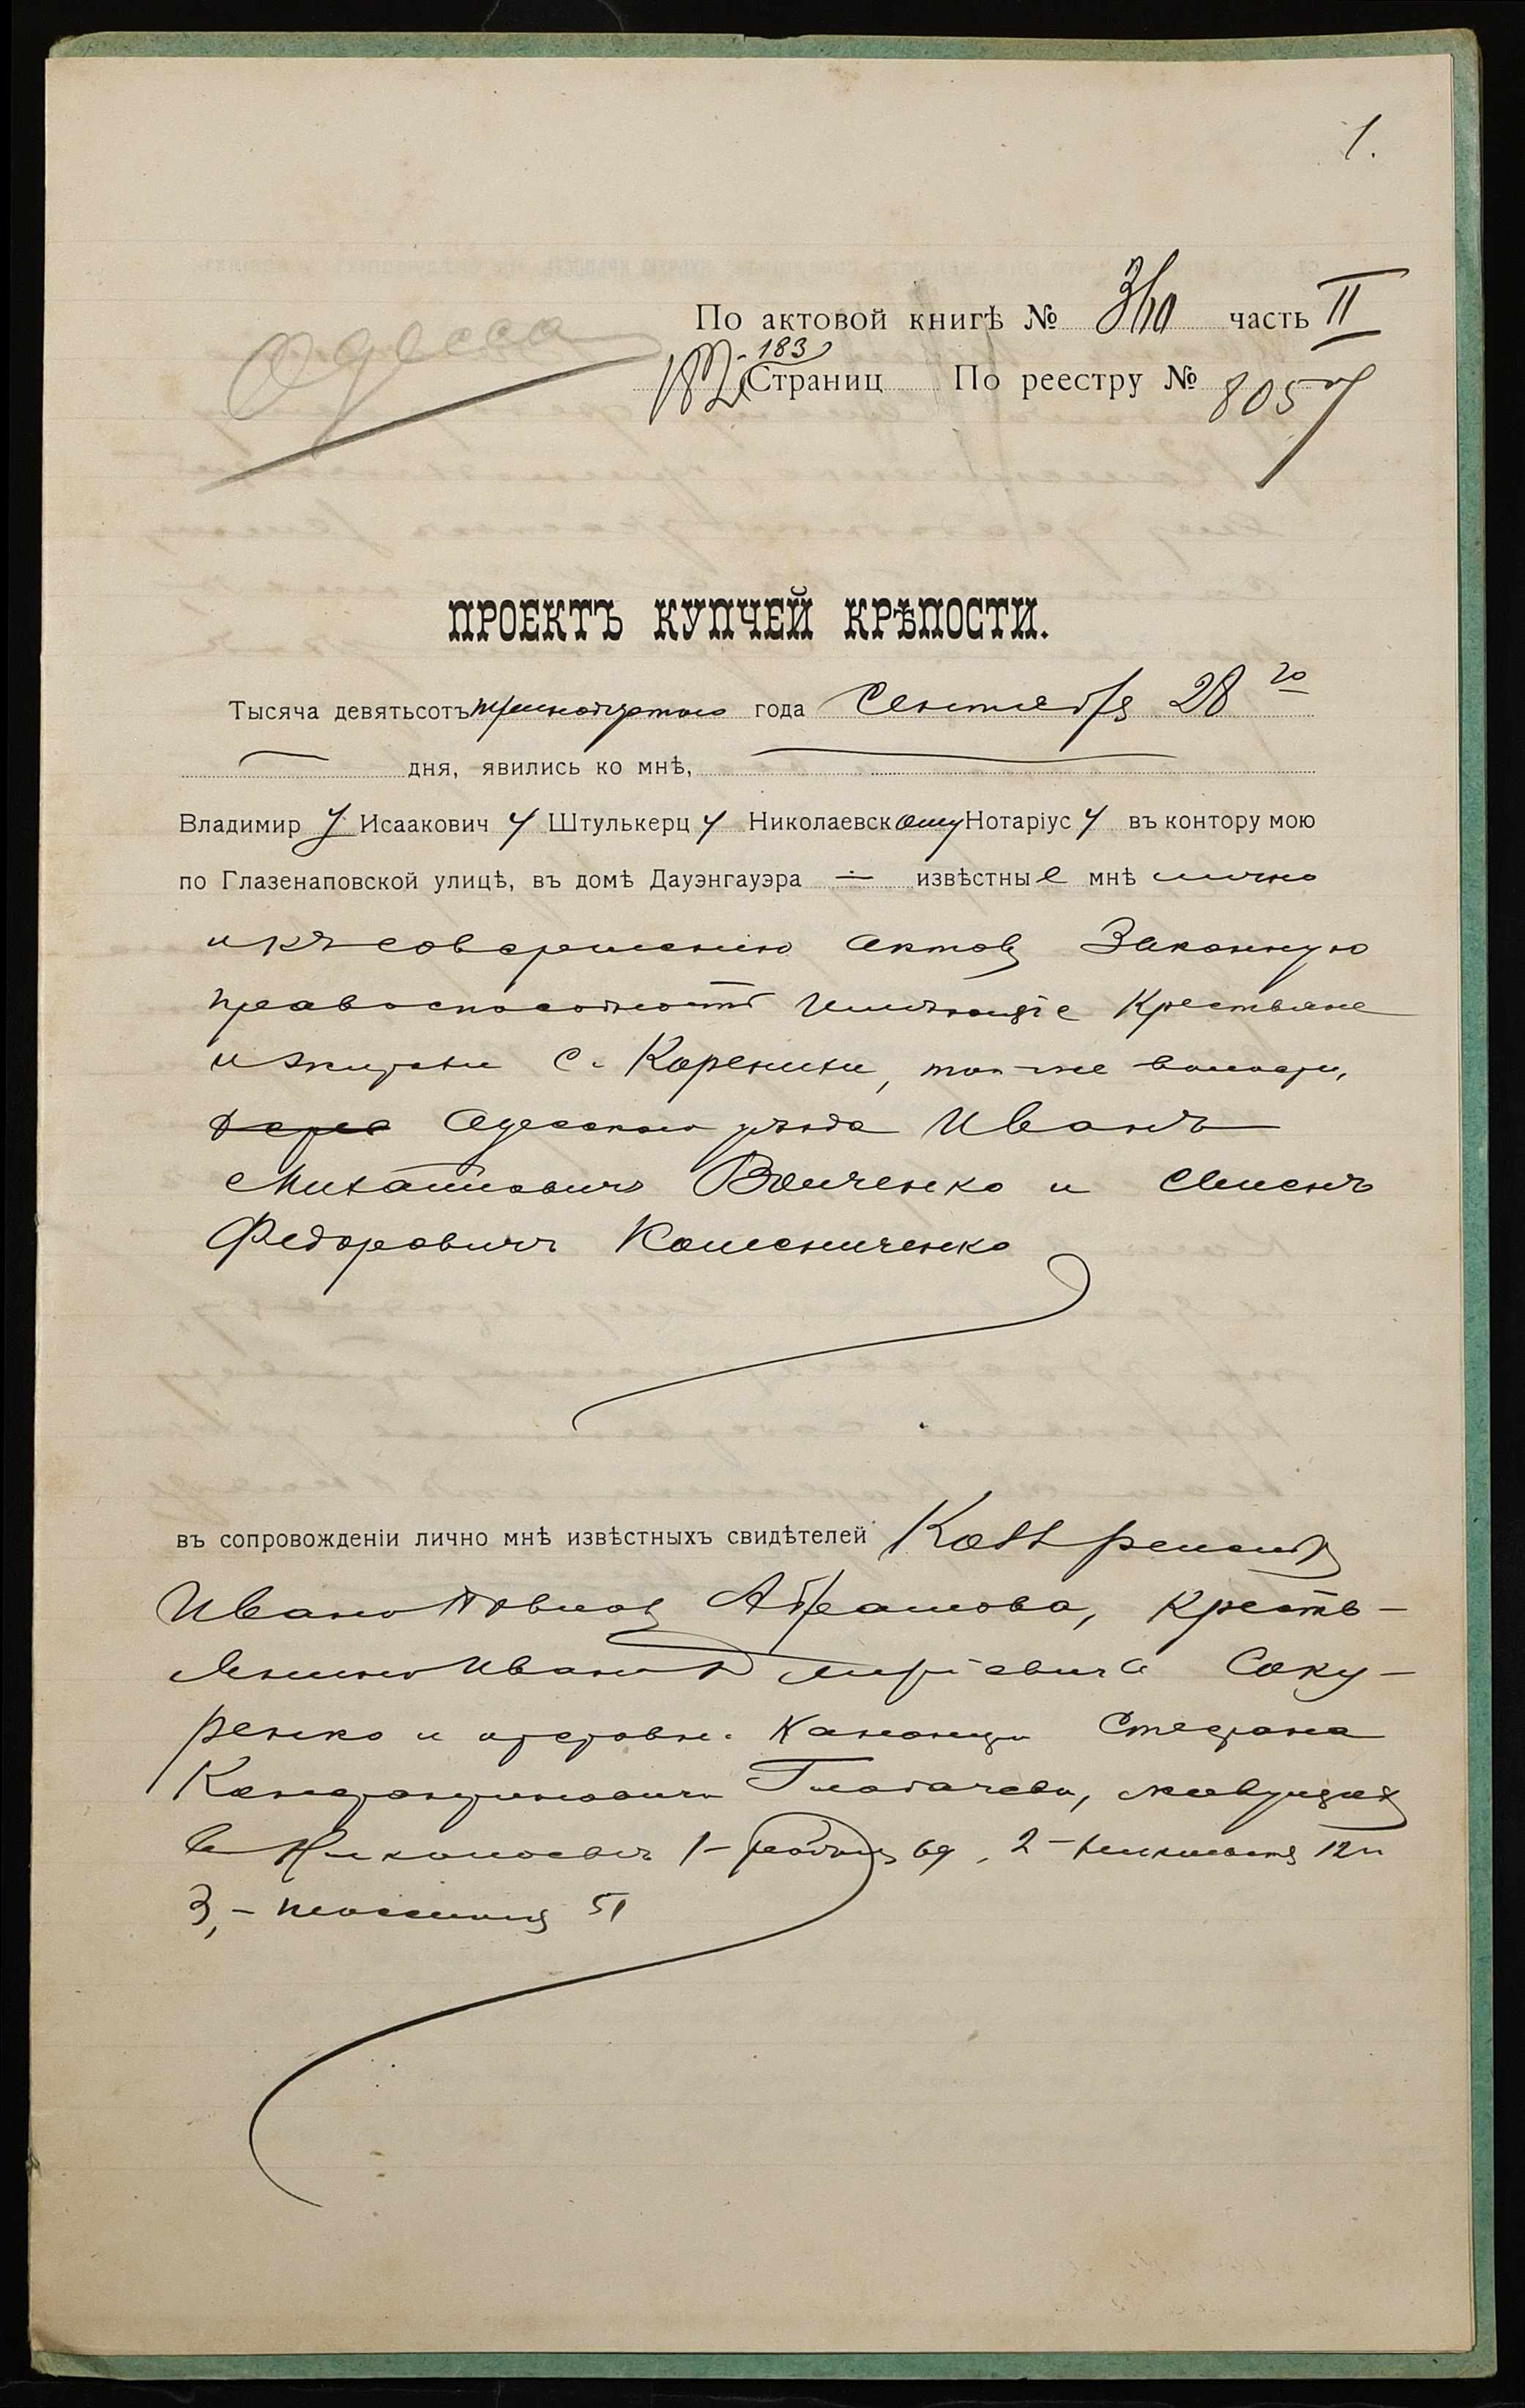 1.
Одесса
По актовой книгѣ № часть II
182-183 Страниц По реестру № 8057
ПРОЕКТЪ КУПЧЕЙ КРѢПОСТИ.
Тысяча девятьсотъ тринадцатаго года Сентября 28 го
дня, явились ко мнѣ,
Владимир у Исаакович у Штулькерц у Николаевскому Нотаріус у въ контору мою
по Глазенаповской улицѣ, въ домѣ Дауэнгауэра извѣстны е мнѣ лично
и къ совершенію актовъ законную
правоспособность имѣющіе Крестьяне
с. Коренихи, той-же волости,
Одесскаго уѣзда Иванъ
Михайловичъ Войченко и Семенъ
Федоровичъ Колесниченко
въ сопровожденіи лично мнѣ извѣстныхъ свидѣтелей
Ивана Абрамова, Кресть-
янина Ивана Соку-
ренко и Степана
Константиновича живущихъ
въ Николаевѣ 1- 69, 2- 12 и
3,- 51